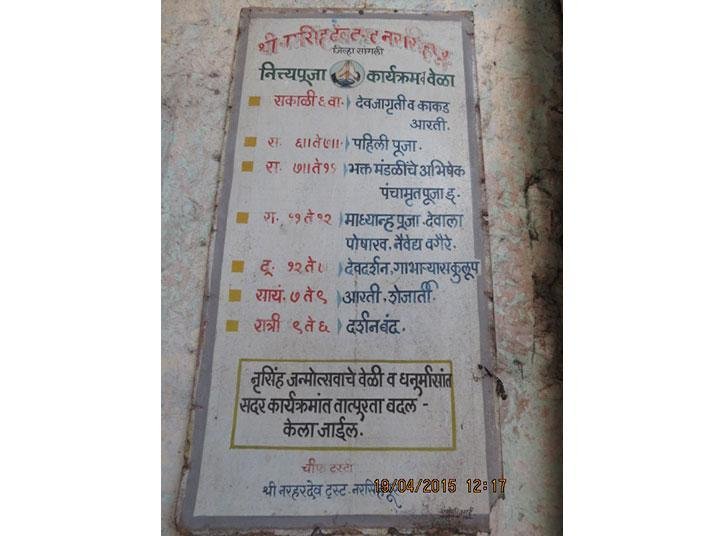 श्री
जिल्हा सांगली
नित्यपूजा कार्यक्रम वेळा
सकाळी ६ वा. देवजागृती व काकड
आरती.
स. ६॥ ते ७॥ पहिली पूजा.
स. ७॥ ते भक्त मंडळींचे अभिषेक
पंचामृतपूजा इ.
११ ते १२ माध्यान्ह पूजा. देवाला
पोषाख, नैवेद्य वगैरे.
दू. १२ ते ७ देवदर्शन, गाभाऱ्यास कुलूप
सायं. ७ ते ९ आरती, शेजारती
रात्री ९ ते ६ दर्शन बंद.
नृसिंह जन्मोत्सवाचे वेळी व धनुर्मासांत
सदर कार्यक्रमांत तात्पुरता बदल -
केला जाईल.
चीफ ट्रस्टी
श्री नरहरदेव ट्रस्ट.
19/04/2015 12:17